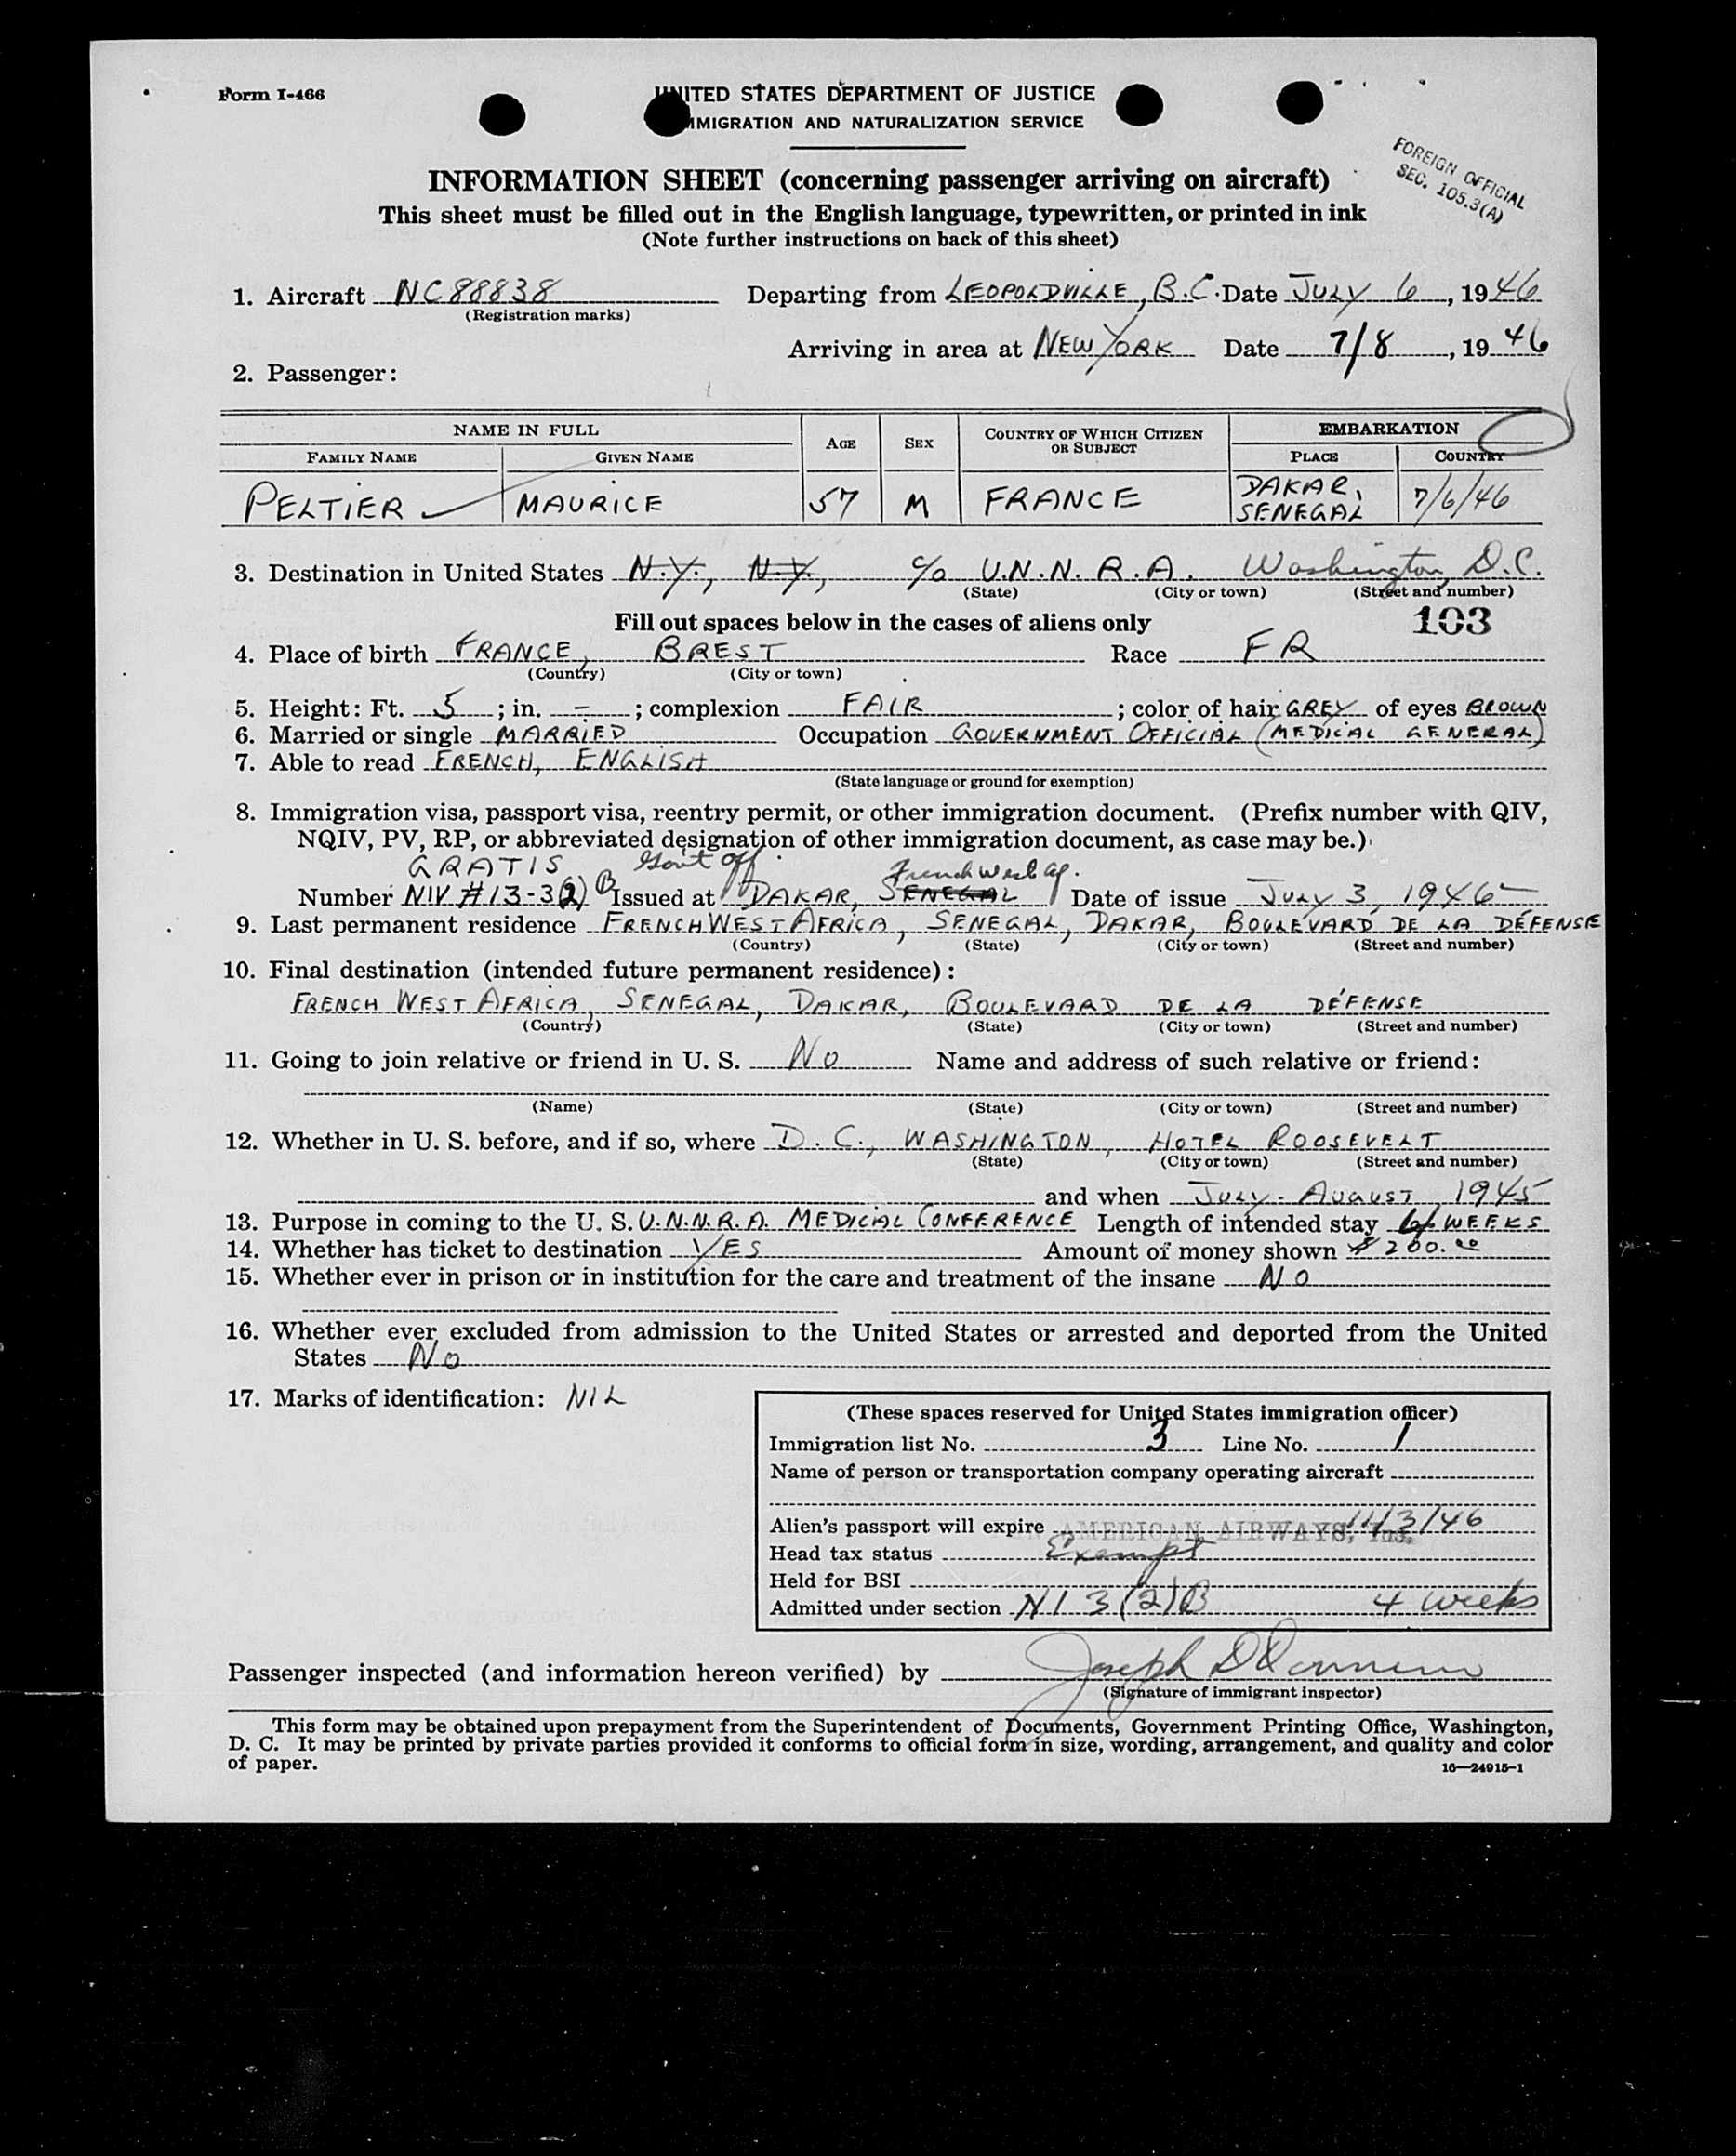 Form I-466
UNITED STATES DEPARTMENT OF JUSTICE
IMMIGRATION AND NATURALIZATION SERVICE
FOREIGN OFFICIAL
SEC. 105.3(A)
INFORMATION SHEET (concerning passenger arriving on aircraft)
This sheet must be filled out in the English language, typewritten, or printed in ink
(Note further instructions on back of this sheet)
1. Aircraft NC88838 Departing from LEOPOLDVILLE, B.C. Date JULY 6, 1946
(Registration marks)
Arriving in area at NEW YORK Date 7/8, 1946
2. Passenger:
NAME IN FULL AGE SEX COUNTRY OF WHICH CITIZEN OR SUBJECT EMBARKATION
FAMILY NAME GIVEN NAME PLACE COUNTRY
PELTIER MAURICE 57 M FRANCE DAKAR, SENEGAL 7/6/46
3. Destination in United States N.Y., N.Y., c/o U.N.N.R.A. Washington, D.C.
(State) (City or town) (Street and number)
Fill out spaces below in the cases of aliens only 103
4. Place of birth FRANCE, BREST Race FR
(Country) (City or town)
5. Height: Ft. 5; in. –; complexion FAIR; color of hair GREY of eyes BROWN
6. Married or single MARRIED Occupation GOVERNMENT OFFICIAL (MEDICAL GENERAL)
7. Able to read FRENCH, ENGLISH
(State language or ground for exemption)
8. Immigration visa, passport visa, reentry permit, or other immigration document. (Prefix number with QIV,
NQIV, PV, RP, or abbreviated designation of other immigration document, as case may be.)
GRATIS Gov't off. French West Af.
Number NIV #13-3(2) B Issued at DAKAR, SENEGAL Date of issue JULY 3, 1946
9. Last permanent residence FRENCH WEST AFRICA, SENEGAL, DAKAR, BOULEVARD DE LA DÉFENSE
(Country) (State) (City or town) (Street and number)
10. Final destination (intended future permanent residence):
FRENCH WEST AFRICA, SENEGAL, DAKAR, BOULEVARD DE LA DÉFENSE
(Country) (State) (City or town) (Street and number)
11. Going to join relative or friend in U. S. No Name and address of such relative or friend:
(Name) (State) (City or town) (Street and number)
12. Whether in U. S. before, and if so, where D.C., WASHINGTON, HOTEL ROOSEVELT
(State) (City or town) (Street and number)
and when JULY-AUGUST 1945
13. Purpose in coming to the U. S. U.N.N.R.A. MEDICIAL CONFERENCE Length of intended stay WEEKS
14. Whether has ticket to destination YES Amount of money shown $200.00
15. Whether ever in prison or in institution for the care and treatment of the insane NO
16. Whether ever excluded from admission to the United States or arrested and deported from the United
States NO
17. Marks of identification: NIL
(These spaces reserved for United States immigration officer)
Immigration list No. 3 Line No. 1
Name of person or transportation company operating aircraft
AMERICAN AIRWAYS, Inc.
Alien's passport will expire 11/3/46
Head tax status Exempt
Held for BSI
Admitted under section NI 3(2)B 4 weeks
Passenger inspected (and information hereon verified) by Joseph D
(Signature of immigrant inspector)
This form may be obtained upon prepayment from the Superintendent of Documents, Government Printing Office, Washington,
D. C. It may be printed by private parties provided it conforms to official form in size, wording, arrangement, and quality and color
of paper.
16—24915-1